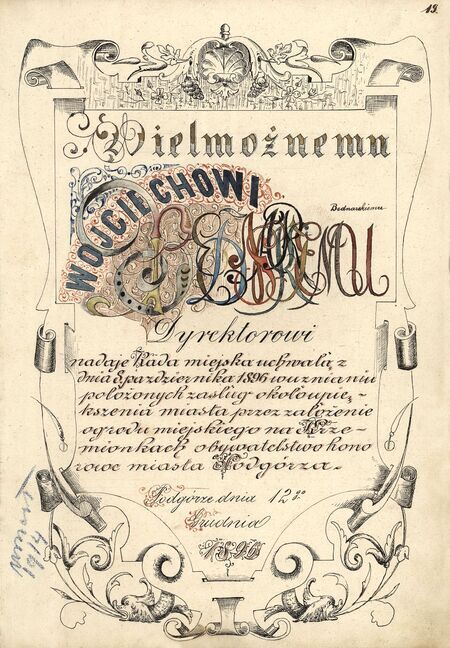 19.
Wielmożnemu
WOJCIECHOWI
Bednarskiemu
Dyrektorowi
nadaje Rada miejska uchwałą z
dnia 8 października 1896 w uznaniu
położonych zasług około upię-
kszenia miasta przez założenie
ogrodu miejskiego na Krze-
mionkach obywatelstwo hono
rowe miasta Podgórza.
Podgórze dnia 12go
Grudnia
1896.